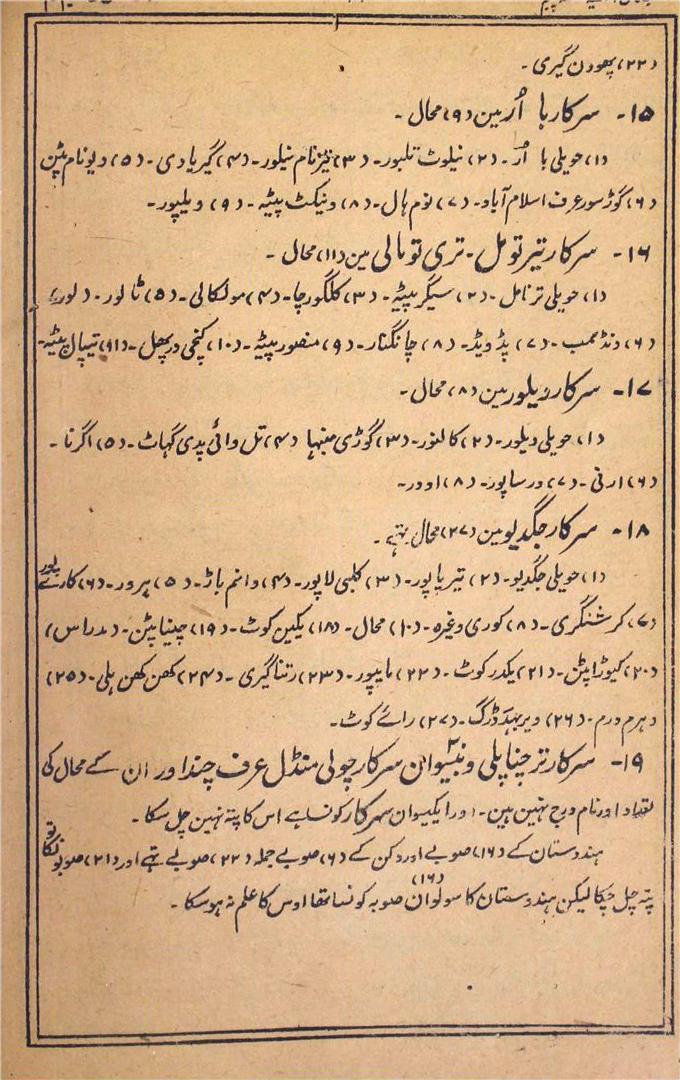 (۲۲) پھودن گیری۔
۱۵۔ سرکار با اُر مین (۹) محال۔
(۱) حویلی با اُر۔ (۲) نیلوٹ تلبور۔ (۳) نیز نام نیلور۔ (۴) گیریادی۔ (۵) دیونام پٹن
(۶) گوڑسور عرف اسلام آباد۔ (۷) نوم ہال۔ (۸) ونیکٹ پیٹہ۔ (۹) ویلپور۔
۱۶۔ سرکار تیر تومل۔ تری تومالی مین (۱۱) محال۔
(۱) حویلی ترنامل۔ (۲) سیگر پیٹہ۔ (۳) کلگورچا۔ (۴) مولکالی۔ (۵) ٹالور۔ (لور)
(۶) ونڈمب۔ (۷) پڈویڈ۔ (۸) چانگنار۔ (۹) منصور پیٹہ۔ (۱۰) کنچی درپھل۔ (۱۱) تیپال پیٹہ۔
۱۷۔ سرکار ویلور مین (۸) محال۔
(۱) حویلی ویلور۔ (۲) کالنور۔ (۳) گوڑی منہا (۴) تل وائی پدی گہاٹ۔ (۵) اگرنا۔
(۶) ارنی۔ (۷) ورساپور۔ (۸) اوور۔
۱۸۔ سرکار جگدیو مین (۲۷) محال تہے۔
(۱) حویلی جگدیو۔ (۲) تیریاپور۔ (۳) کلبی لاپور۔ (۴) وانم باڑ۔ (۵) پرور۔ (۶) کارے پور
(۷) کرشنگری۔ (۸) کوری وغیرہ۔ (۱۰) محال۔ (۱۸) یکین کوٹ۔ (۱۹) چیناپٹن۔ (مدراس)
(۲۰) کیوڑاپٹن۔ (۲۱) یکدر کوٹ۔ (۲۲) مایپور۔ (۲۳) رتناگیری۔ (۲۴) کھن کھن ہلی۔ (۲۵)
دہرم ورم۔ (۲۶) ویر بہدڈرگ۔ (۲۷) رائے کوٹ۔
۱۹۔ سرکار ترچناپلی و بیسوان ۲ سرکار چولی منڈل عرف چندا ور ان کے محال کی
تعداد اور نام درج نہین ہین۔ اور ایکیسوان سرکار کونسا ہے اس کا پتہ نہین چل سکا۔
ہندوستان کے (۱۶) صوبے اور دکن کے (۶) صوبے جملہ (۲۲) صوبے تہے اور (۲۱) صوبونکا تو
پتہ چل چکا لیکن ہندوستان کا سولوان (۱۶) صوبہ کونسا تھا اوس کا علم نہ ہو سکا۔